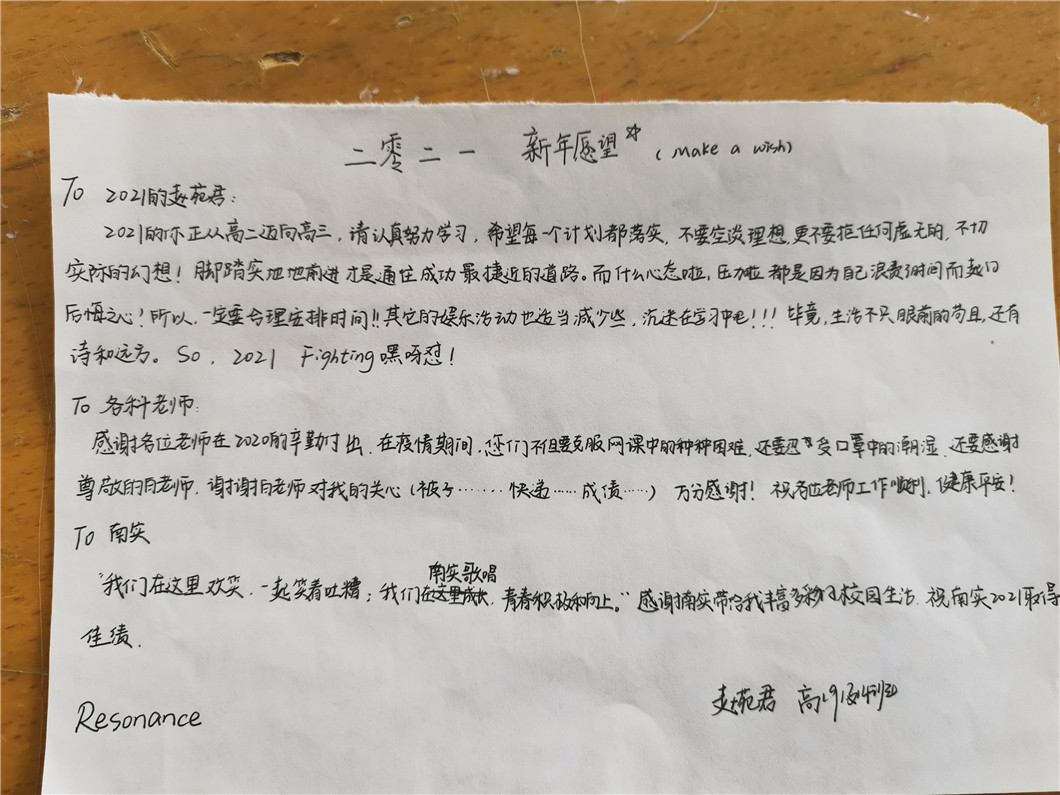 二零二一 新年愿望 (make a wish)
To 2021的赵苑君:
2021的你正从高二迈向高三,请认真努力学习,希望每一个计划都落实,不要空谈理想,更不要抱任何虚无的,不切
实际的幻想!脚踏实地地前进才是通往成功最捷近的道路。而什么心态啦,压力啦都是因为自己浪费了时间而起的
后悔之心!所以,一定要合理安排时间!!其它的娱乐活动也适当减少些,沉迷在学习中吧!!!毕竟,生活不只眼前的苟且,还有
诗和远方。So, 2021 Fighting嘿呀怼!
To 各科老师:
感谢各位老师在2020的辛勤付出,在疫情期间,您们不但要克服网课中的种种困难,还要忍受口罩中的潮湿,还要感谢
尊敬的白老师,谢谢白老师对我的关心(被子······快递·····成绩·····)万分感谢!祝各位老师工作顺利,健康平安!
To 南实
"我们在这里欢笑,一起笑着吐糟;我们在南实歌唱,青春积极和向上。"感谢南实带给我丰富多彩的校园生活,祝南实2021取得
佳绩.
赵苑君
Resonance